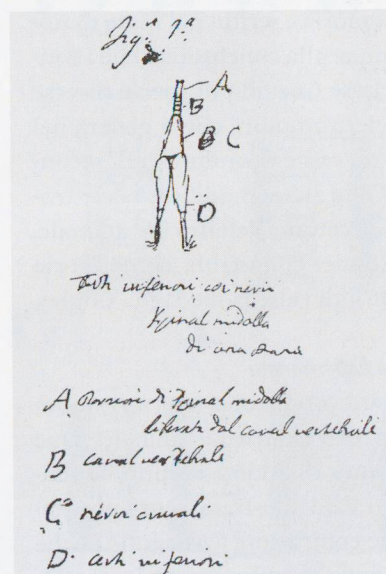 Fig.ª 1.ª
A
B
B C
D
Arti inferiori coi nervi
spinal midolla
di una rana
A Porzioni di spinal midolla
liberata dal canal vertebrale
B canal vertebrale
C nervi crurali
D. arti inferiori